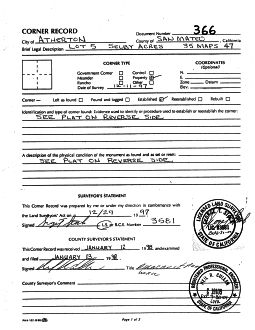 CORNER RECORD
Document Number 366
City of ATHERTON County of SAN MATEO, California
Brief Legal Description LOT 5 SELBY ACRES 35 MAPS 47
CORNER TYPE
COORDINATES
(Optional)
Government Corner Control
Meander Property
Rancho Other
Date of Survey 12-11-97
N.
E.
Zone Datum
Elev.
Corner — Left as found Found and tagged Established Reestablished Rebuilt
Identification and type of corner found: Evidence used to identify or procedure used to establish or reestablish the corner:
SEE PLAT ON REVERSE SIDE
A description of the physical condition of the monument as found and as set or reset:
SEE PLAT ON REVERSE SIDE
SURVEYOR'S STATEMENT
This Corner Record was prepared by me or under my direction in conformance with
the Land Surveyors' Act on 12/29 1997
Signed L.S. or R.C.E. Number 3681
COUNTY SURVEYOR'S STATEMENT
This Corner Record was received JANUARY 12 1998 and examined
and filed JANUARY 13 1998
Signed Title
County Surveyor's Comment
Page 1 of 2